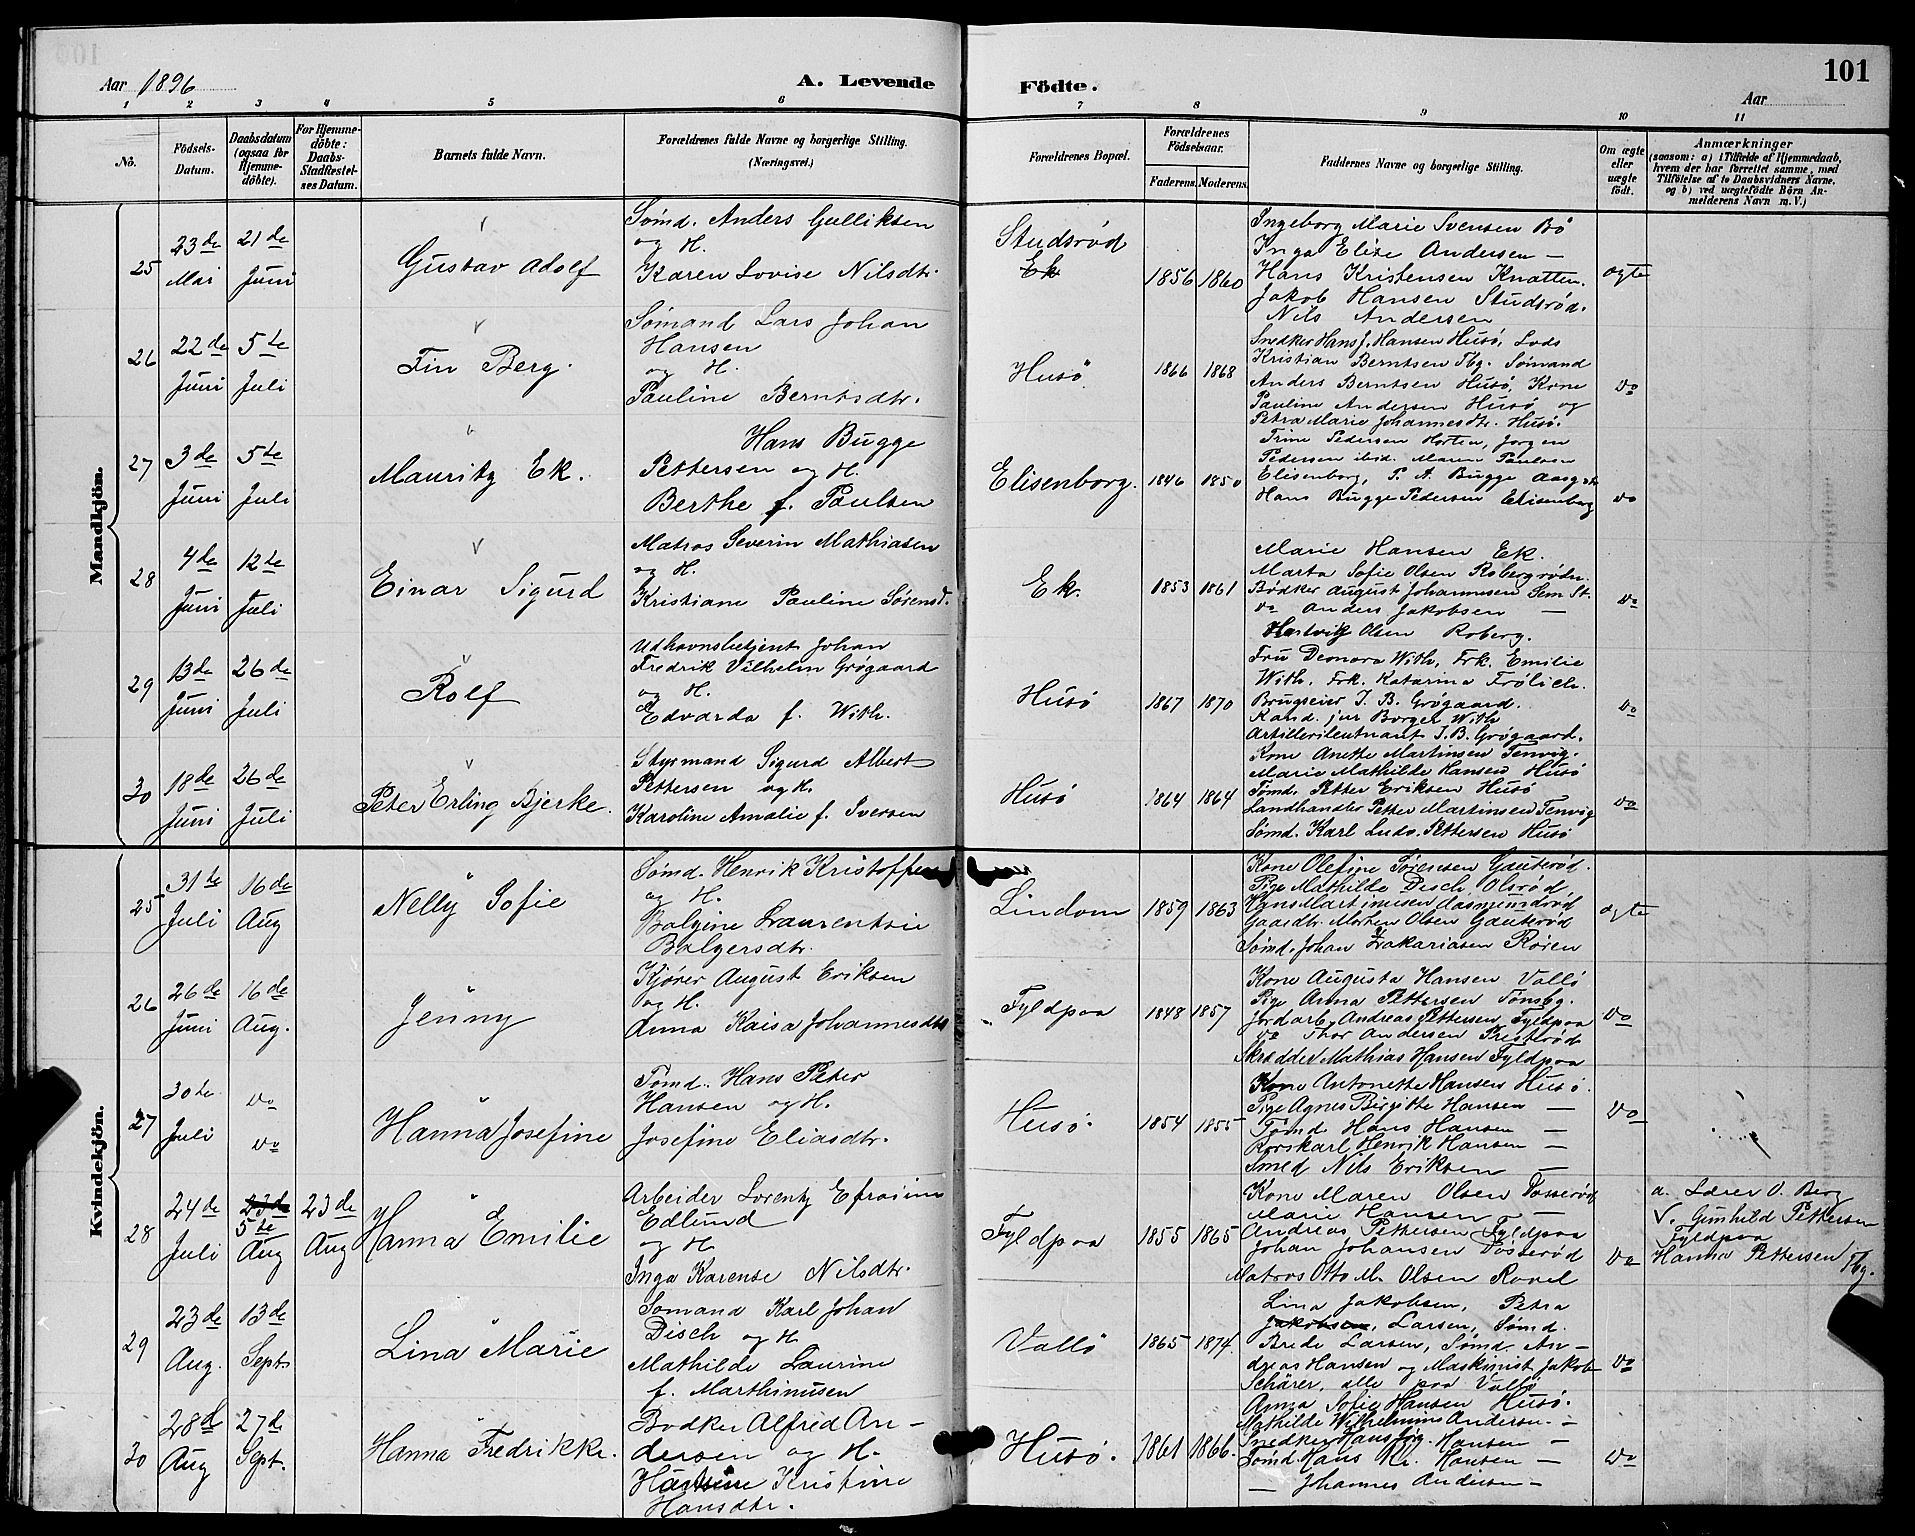 Aar 1896
A. Levende Födte.
101
Aar
1 2 3 4 5 6 7 8 9 10 11
No.
Födsels-Datum.
Daabsdatum (ogsaa for Hjemme-döbte).
For Hjemme-döbte: Daabs-Stadfæstel-ses Datum.
Barnets fulde Navn.
Forældrenes fulde Navne og borgerlige Stilling. (Næringsvei.)
Forældrenes Bopæl.
Forældrenes Födselsaar.
Faderens. Moderens.
Faddernes Navne og borgerlige Stilling.
Om ægte eller uægte födt.
Anmærkninger
(saasom: a) i Tilfælde af Hjemmedaab, hvem der har forrettet samme, med Tilföielse af to Daabsvidners Navne, og b) ved uægtefödte Börn Anmelderens Navn m. V.)
Mandkjön.
25
23de Mai
21de Juni
Gustav Adolf
Sømd. Anders Gulliksen
og H.
Karen Lovise Nilsdtr.
Studsrød
Ek
1856 1860
Ingeborg Marie Svensen Bö
Inga Elise Andersen —
Hans Kristensen Knatten.
Jakob Hansen Studsrød.
Nils Andersen
ægte
26
22de Juni
5te Juli
Fin Berg.
Sömand Lars Johan
Hansen
og H.
Pauline Berntsdtr.
Husö
1866 1868
Snedker Hans J. Hansen Husö, Lods
Kristian Berntsen Tbg. Sömand
Anders Berntsen Husö, Kone
Pauline Andersen Husö og
Petra Marie Johannesdtr. Husö.
do
27
3de Juni
5te Juli
Mauritz Ek.
Hans Bugge
Pettersen og H.
Berthe f. Paulsen
Elisenborg.
1846 1850
Trine Pedersen Horten, Jørgen
Pedersen ibid. Maren Paulsen
Elisenborg, P. A. Bugge Aasg
Hans Bugge Pedersen Elisenborg
do
28
4de Juni
12te Juli
Einar Sigurd
Matros Severin Mathiasen
og H.
Kristiane Pauline Sørensd.
Ek.
1853 1861
Marie Hansen Ek.
Marta Sofie Olsen Robergrødn.
Bødker August Johannesen Sem St.
do Anders Jakobsen —
Hartvig Olsen Roberg.
do
29
13de Juni
26de Juli
Rolf
Udhavnsbetjent Johan
Fredrik Vilhelm Grøgaard
og H.
Edvarda f. With.
Husö
1867 1870
Fru Deonora With, Frk. Emilie
With, Frk. Katarina Frölich.
Brugseier J. B. Grøgaard.
Kand. jur Borger With
Artillerileutnant J. B. Grøgaard.
do
30
18de Juni
26de Juli
Peter Erling Bjerke.
Styrmand Sigurd Albert
Pettersen og H.
Karoline Amalie f. Iversen
Husö
1864 1864
Kone Anette Martinsen Tenvig.
Marie Mathilde Hansen Husö
Tømd. Petter Eriksen Husö
Landhandler Petter Martinsen Tenvig
Sømd. Karl Ludv. Pettersen Husö
do
Kvindekjön.
25
31te Juli
16de Aug
Nelly Sofie
Sømd. Henrik Kristoffersen
og H.
Bolgine Laurentsie
Bolgersdtr.
Lindom
1859 1863
Kone Olefine Sørensen Gauterød.
Pige Mathilde Disch, Olsrød,
Hans Martinusen Aasmundsrød
Gaardbr. Morten Olsen Gauterød
Sømd. Johan Zakariasen Røren
ægte
26
26de Juni
16de Aug.
Jenny
Kjører August Eriksen
og H.
Anna Kaisa Johannesdtr
Fyldpaa
1848 1857
Kone Augusta Hansen Vallö
Pige Anna Pettersen Tönsbg.
Jordarb. Andreas Pettersen Fyldpaa
do Thor Andersen Presterød
Skrædder Mathias Hansen Fyldpaa
do
27
30te Juli
do
do
Hanna Josefine
Tömd. Hans Peter
Hansen og H.
Josefine Eliasdtr.
Husö.
1854 1855
Kone Antonette Hansen Husö.
Pige Agnes Birgitte Hansen —
Tømd Hans Hansen —
Rorskarl Henrik Hansen —
Smed Nils Eriksen —
do
28
24de Juli
23de
5te Aug
23de Aug
Hanna Emilie
Arbeider Lorentz Efraim
Edlund
og H.
Inga Karense Nilsdtr.
Fyldpaa
1855 1865
Kone Maren Olsen Tosserød
Marie Hansen —
Andreas Pettersen Fyldpaa
Johan Johansen Tosserød
Matros Otto M. Olsen Ravel
do
a. Lærer O. Berg
V. Gunhild Pettersen
Fyldpaa
Hanna Pettersen Tbg.
29
23de Aug.
13de Sept.
Lina Marie
Sømand Karl Johan
Disch og H.
Mathilde Laurine
f. Marthinusen
Vallö
1865 1874.
Lina Jakobsen, Petra
Jakobsen, Larsen, Sømd.
Brede Larsen, Sømd. An-
dreas Hansen og Maskinist Jakob
Schärer, alle paa Vallö
do
30
28d Aug
27de Sept.
Hanna Fredrikke.
Bødker Alfred An-
dersen og H.
Kristine
Hansdtr.
Husö.
1861 1866.
Anna Sofie Hansen Husö.
Mathilde Wilhelmine Andersn. —
Snedker Hans Jørg. Hansen —
Tømd Hans Kr. Hansen —
— Johannes Andersen —
do